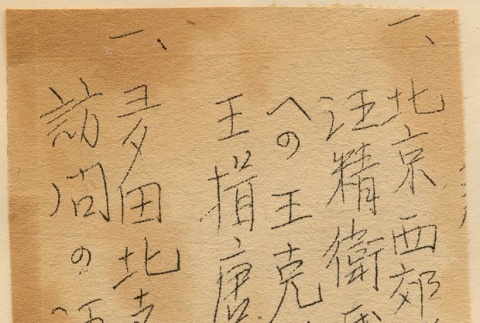 一、
北京西郊
汪精衛
への王克
王揖唐
一、
多田北京
訪問の